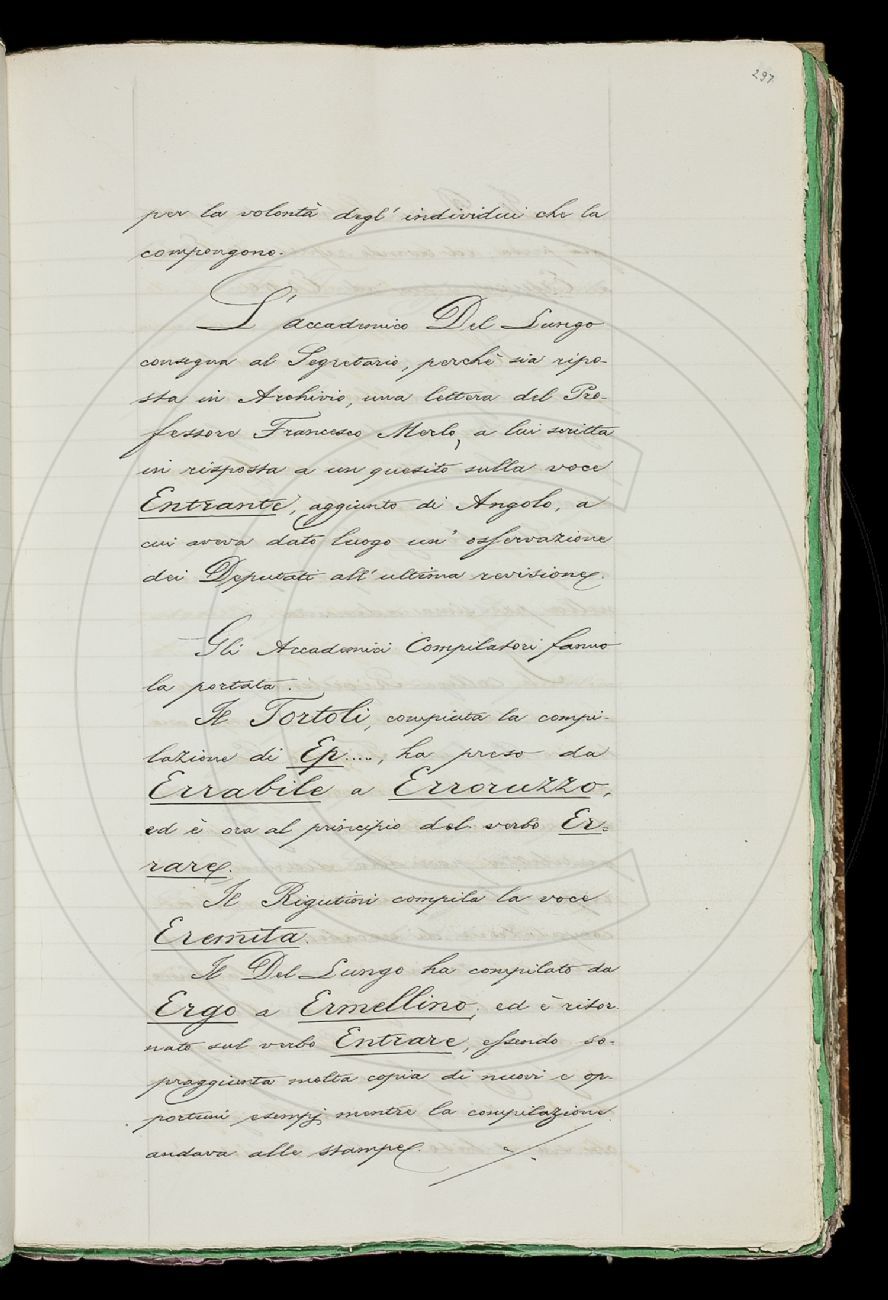 297
per la volontà degl' individui che la
compongono.
L' accademico Del Lungo
consegna al Segretario, perchè sia ripo-
sta in Archivio, una lettera del Pro-
fessore Francesco Merlo, a lui scritta
in risposta a un quesito sulla voce
Entrante, aggiunto di Angolo, a
cui aveva dato luogo un' osservazione
dei Deputati all' ultima revisione.
Gli Accademici Compilatori fanno
la portata.
Il Tortoli, compiuta la compi-
lazione di Ep...., ha preso da
Errabile a Erroruzzo,
ed è ora al principio del verbo Er-
rare.
Il Rigutini compila la voce
Eremita.
Il Del Lungo ha compilato da
Ergo a Ermellino, ed è ritor
nato sul verbo Entrare, essendo so-
praggiunta molta copia di nuovi e op-
portuni esempj mentre la compilazione
andava alle stampe.